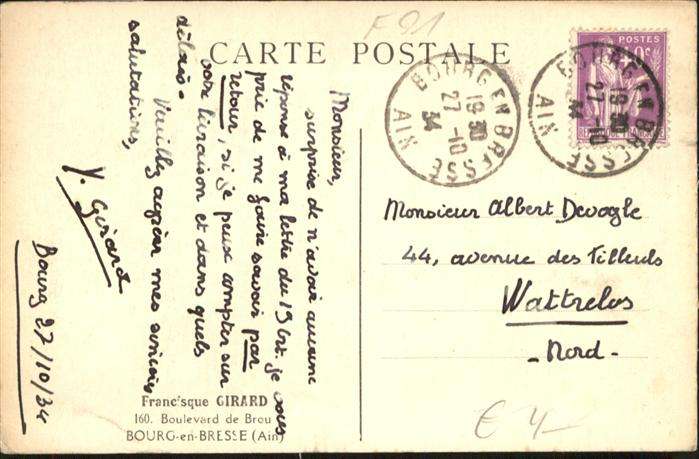 F 91
CARTE POSTALE
POSTES
BOURG EN BRESSE
19 30
27 -10
34
AIN
BOURG EN BRESSE
19 30
27 -10
34
AIN
Monsieur,
surprise de n'avoir aucune
réponse à ma lettre du 19 ct. je vous
prie de me faire savoir par
retour, si je peux compter sur
votre livraison et dans quels
délais.
Veuillez agréer mes sincères
salutations,
Y. Girard
Bourg 27/10/34
Monsieur Albert Devogle
44, avenue des Tilleuls
Wattrelos
- Nord -
Francisque GIRARD
160. Boulevard de Brou
BOURG-en-BRESSE (Ain)
€ 4-